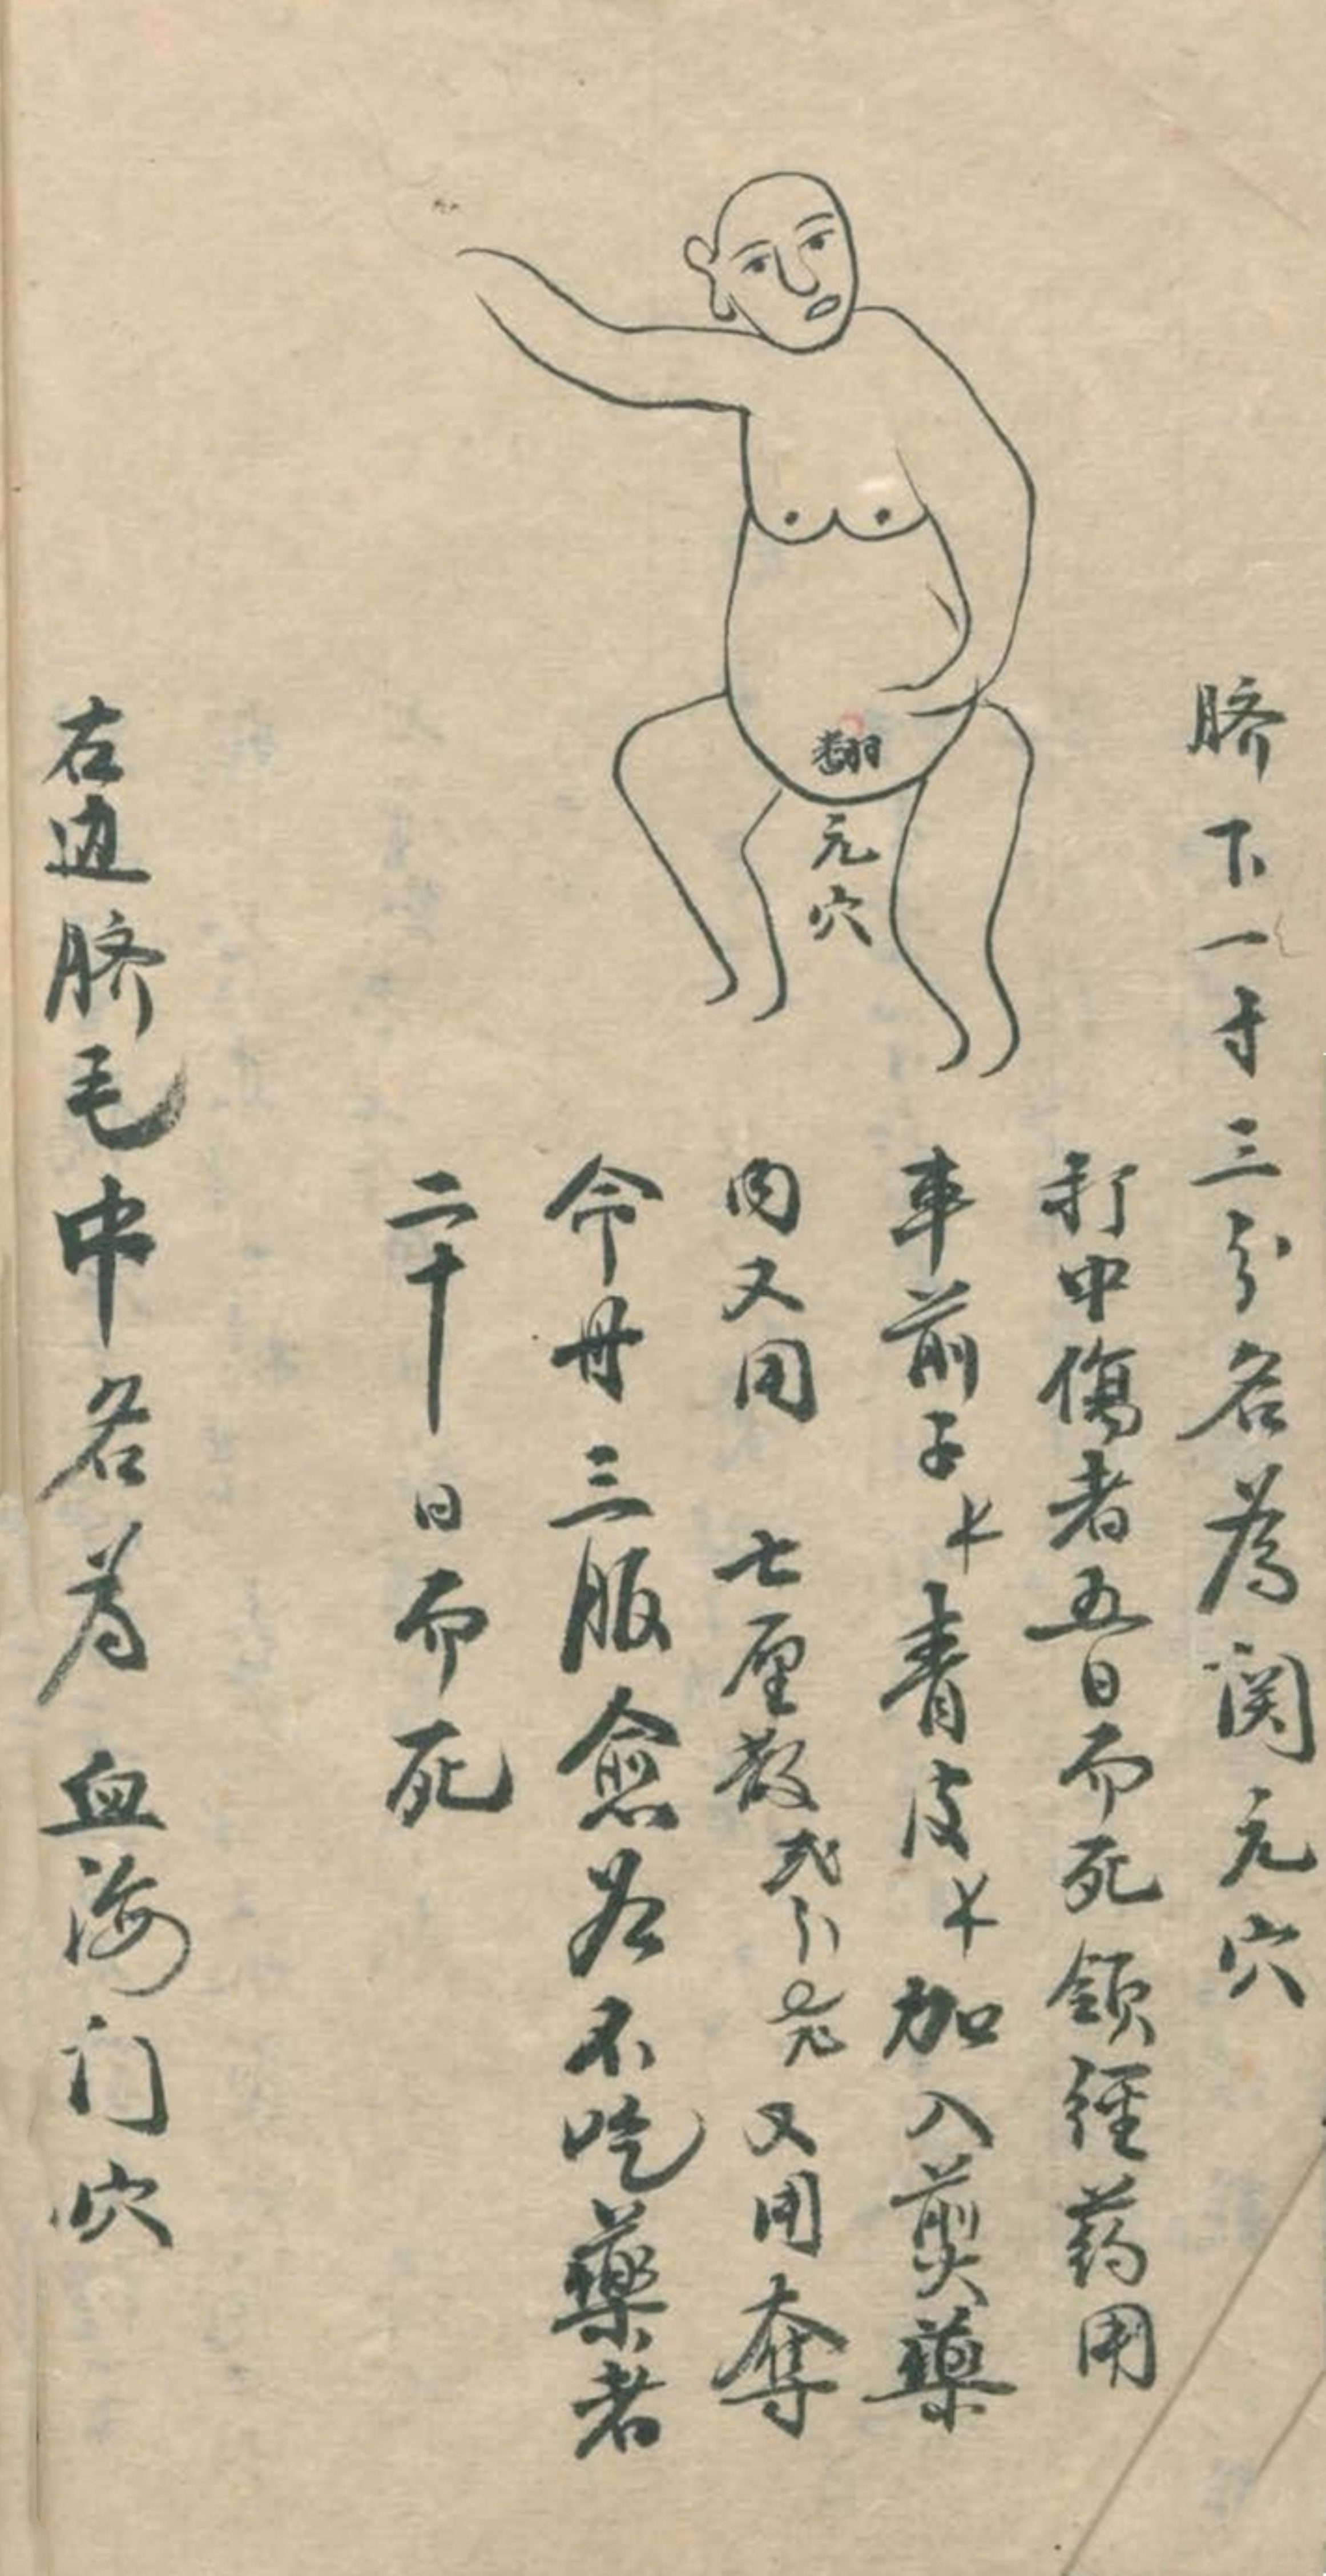 脐下一寸三分名為関元穴
元穴
打中傷者五日而死 領經药用
車前子 青皮 加入煎藥
内又用 七厘散弍分 又用奪
命丹三服愈若不吃藥者
二十日而死
右边脐毛中名為 血海门穴